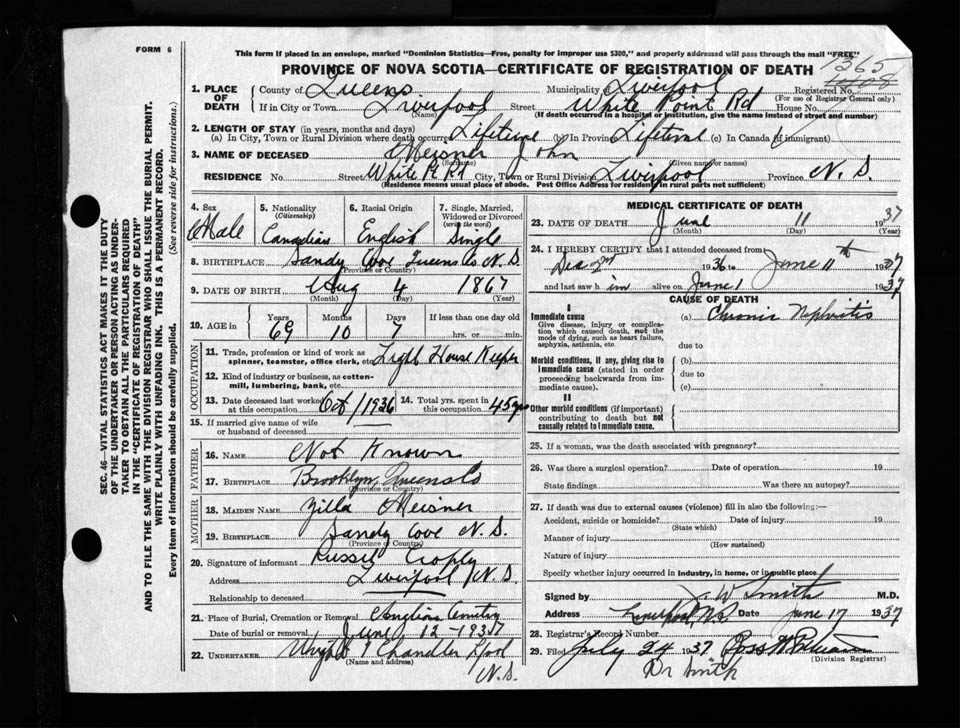 FORM 6
This form if placed in an envelope, marked "Dominion Statistics—Free, penalty for improper use $300," and properly addressed will pass through the mail "FREE"
PROVINCE OF NOVA SCOTIA—CERTIFICATE OF REGISTRATION OF DEATH
1365
1. PLACE OF DEATH County of Queens Municipality of Liverpool Registered No.
(For use of Registrar General only)
If in City or Town Liverpool Street White Point Rd House No.
(Name) (If death occurred in a hospital or institution, give the name instead of street and number)
2. LENGTH OF STAY (in years, months and days)
(a) In City, Town or Rural Division where death occurred Lifetime (b) In Province Lifetime (c) In Canada (if immigrant)
3. NAME OF DECEASED Meisner John
(Surname) (Given name or names)
RESIDENCE No. Street White Pt Rd City, Town or Rural Division Liverpool Province N.S.
(Residence means usual place of abode. Post Office Address for residents in rural parts not sufficient)
4. Sex 5. Nationality 6. Racial Origin 7. Single, Married, Widowed or Divorced
(Citizenship) (write the word)
Male Canadian English Single
8. BIRTHPLACE Sandy Cove Queens Co N.S.
(Province or Country)
9. DATE OF BIRTH Aug 4 1867
(Month) (Day) (Year)
10. AGE in Years Months Days If less than one day old
69 10 7 hrs. or min.
OCCUPATION
11. Trade, profession or kind of work as spinner, teamster, office clerk, etc. Light House Keeper
12. Kind of industry or business, as cotton-mill, lumbering, bank, etc.
13. Date deceased last worked at this occupation Oct/1936 14. Total yrs. spent in this occupation 45 yrs
15. If married give name of wife or husband of deceased
FATHER
16. NAME Not Known
17. BIRTHPLACE Brooklyn, Queens Co
(Province or Country)
MOTHER
18. MAIDEN NAME Zilla Meisner
19. BIRTHPLACE Sandy Cove N.S.
(Province or Country)
20. Signature of informant Russel
Address Liverpool N.S.
Relationship to deceased
21. Place of Burial, Cremation or Removal
Date of burial or removal June 12 - 1937
22. UNDERTAKER Wright & Chandler L'pool
(Name and address) N.S.
MEDICAL CERTIFICATE OF DEATH
23. DATE OF DEATH June 11 1937
(Month) (Day) (Year)
24. I HEREBY CERTIFY that I attended deceased from
Dec 2nd 1936 to June 11th 1937
and last saw him alive on June 1 1937
CAUSE OF DEATH
I
Immediate cause (a) Chronic Nephritis
Give disease, injury or complication which caused death, not the mode of dying, such as heart failure, asphyxia, asthenia, etc.
due to
Morbid conditions, if any, giving rise to immediate cause (stated in order proceeding backwards from immediate cause).
(b)
due to
(c)
II
Other morbid conditions (if important) contributing to death but not causally related to immediate cause.
25. If a woman, was the death associated with pregnancy?
26. Was there a surgical operation? Date of operation 19
State findings Was there an autopsy?
27. If death was due to external causes (violence) fill in also the following:—
Accident, suicide or homicide? Date of injury 19
(State which)
Manner of injury
(How sustained)
Nature of injury
Specify whether injury occurred in industry, in home, or in public place
Signed by J. W Smith M.D.
Address Liverpool, N.S. Date June 17 1937
28. Registrar's Record Number
29. Filed July 24 1937
(Division Registrar)
Dr Smith
SEC. 46—VITAL STATISTICS ACT MAKES IT THE DUTY
OF THE UNDERTAKER OR PERSON ACTING AS UNDER-
TAKER TO OBTAIN ALL THE PARTICULARS REQUIRED
IN THE "CERTIFICATE OF REGISTRATION OF DEATH"
AND TO FILE THE SAME WITH THE DIVISION REGISTRAR WHO SHALL ISSUE THE BURIAL PERMIT.
WRITE PLAINLY WITH UNFADING INK. THIS IS A PERMANENT RECORD.
Every item of information should be carefully supplied. (See reverse side for instructions.)